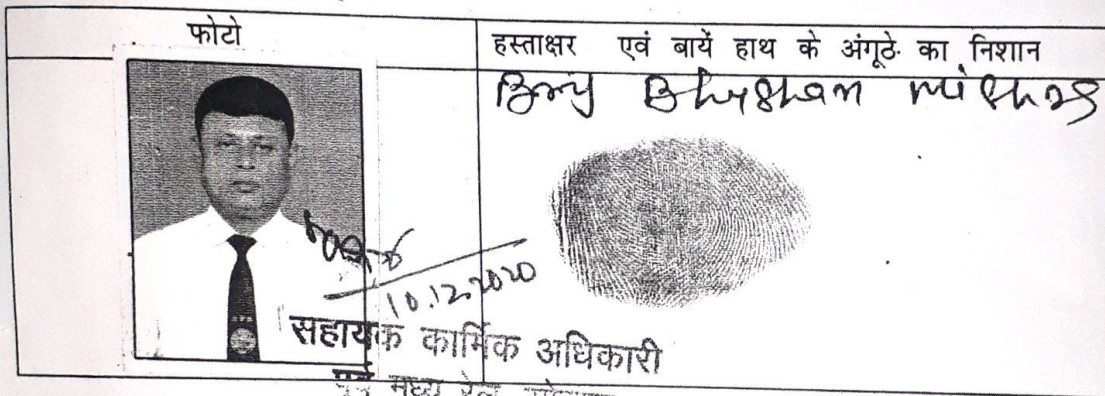 फोटो
हस्ताक्षर एवं बायें हाथ के अंगूठे का निशान
Brij Bhushan Mishra
10.12.2020
सहायक कार्मिक अधिकारी
पूर्व मध्य रेल